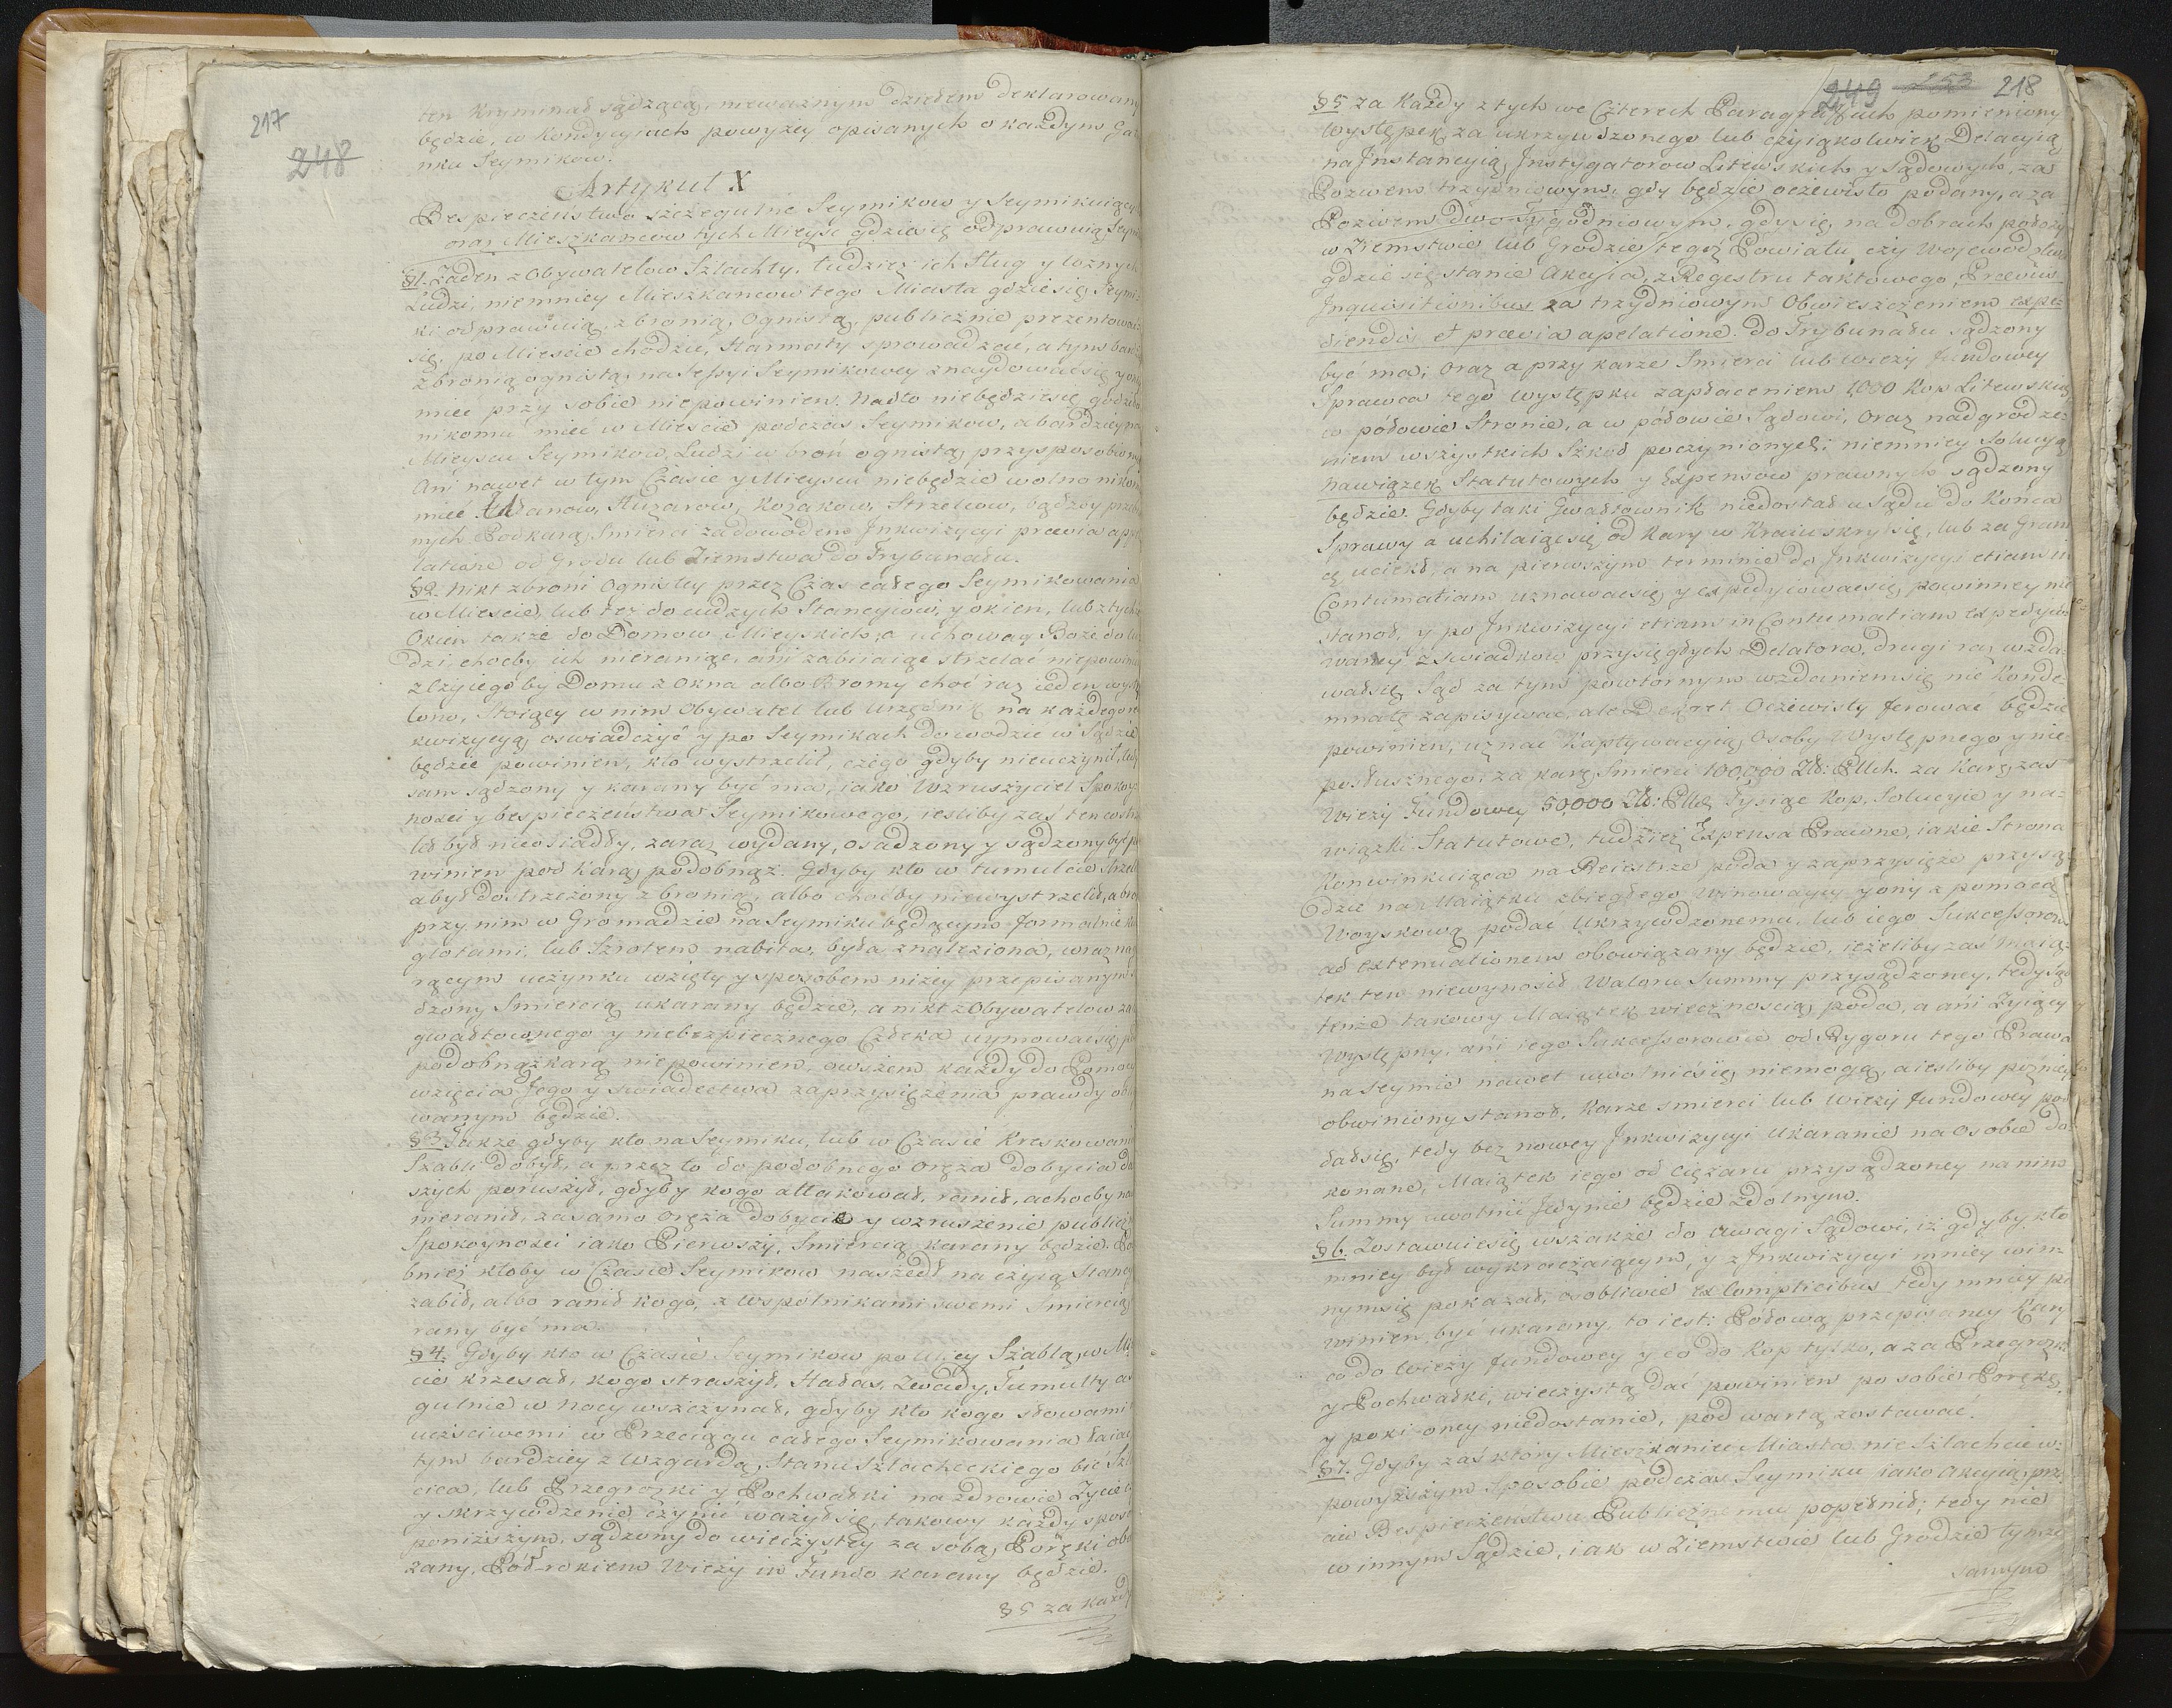 217
248
ten kryminał sądzącą, nieważnym dziełem deklarowany
będzie, w kondycyiach powyżey opisanych o każdym Ga-
nku Seymikow.
Artykuł X
Bespieczenstwo szczegulne Seymikow y Seymikuiący
oraz Mieszkancow tych Mieysc gdzie się odprawuią Seym
§1. Zaden z Obywatelow Szlachty, tudzież ich Sług y loznych
Ludzi, niemniey Mieszkancow tego Miasta gdzie się Seymi-
ki odprawuią, z bronią Ognistą, publicznie prezentować
się, po Miescie chodzić, Harmaty sprowadzać, a tym bar
z bronią ognistą, na Sessyi Seymikowey znaydować się y oney
miec przy sobie niepowinien. Nadto niebędzie się godziło
nikomu miec w Miescie podczas Seymikow, a bardziey na
Mieyscu Seymikow, Ludzi w broń ognistą przysposobion
Ani nawet w tym Czasie y Mieyscu niebędzie wolno nikom
miec Ułanow, Huzarow, Kozakow, Strzelcow, bądź by
nych Pod karą Smierci za dowodem Inkwizycyi prævia app
latione od Grodu lub Ziemstwa do Trybunału.
§2. Nikt z broni Ognistey przez Czas całego Seymikowania
w Miescie, lub też do cudzych Stancyiow, y okien, lub z tych
Okien także do Domow Mieyskich, a uchoway Boże do lu
dzi, choćby ich nieraniąc, ani zabiiaiąc strzelać niepowini
z czyiego by Domu z Okna albo Bramy choć raz ieden wyst
lono, Stoiący w nim Obywatel lub Urzędnik na każdego re
kwizycyą, oswiadczyć y po Seymikach dowodzic w Sądzie
będzie powinien, kto wystrzelił, czego gdyby nieuczynił, tedy
sam sądzony y karany być ma, iako Wzruszyciel Spokoy
ności y bespieczeństwa Seymikowego, iesliby zaś ten co strze
lał był nieosiadły, zaraz wydany, osadzony y sądzony być po
winien pod karą podobnąż. Gdyby kto w tumulcie strzelił
a był dostrzeżony z bronią, albo choćby niewystrzelił, a broń
przy nim w Gromadzie na Seymiku będącym formalnie ku
glotami, lub Szrotem nabita, była znaleziona, wraz na go
rącym uczynku wzięty y sposobem niżey przepisanym są
dzony Smiercią ukarany będzie, a nikt z Obywatelow za
gwałtownego y niebezpiecznego Człeka uymować się, p
podobnąż karą niepowinien, owszem każdy do Pomocy
wzięcia Jego y Swiadectwa zaprzysiężenia prawdy obli
wanym będzie.
§3. Także gdyby kto na Seymiku, lub w Czasie Kreskowania
Szabli dobył, a przez to do podobnego Oręża dobycia dal
szych poruszył, gdyby kogo attakował, ranił, a choćby na
nieranił, za samo Oręża dobycie y wzruszenie publiczn
Spokoyności iako Pierwszy, Smiercią karany będzie. Po
bnież ktoby w Czasie Seymikow naszedł na czyią Stancy
zabił, albo ranił kogo, z wspolnikami swemi Smiercią
rany być ma.
§4. Gdyby kto w Czasie Seymikow po Ulicy Szablą, w Mi
cie krzesał, kogo straszył, Hałas, Zwady, Tumulty a
gulnie w Nocy wszczynał, gdyby kto kogo słowami
uczciwemi w Przeciągu całego Seymikowania łaiał
tym bardziey z Wzgardą, Stanu Szlacheckiego bić Szl
cica, lub Przegrożki y Pochwałki na zdrowie Zycie
y skrzywdzenie czynić ważył się, takowy każdy sposo
poniższym, sądzony do wieczystey za sobą Poręki obo
zany. Pół-rokiem Wieży in Fundo karany będzie.
§5 za każd
249 253 218
§5 za Każdy z tych we Czterech Paragraffach pomieniony
Występek, za ukrzywdzonego lub czyiąkolwiek Delacyią
na Instancyią, Instygatorow Litewskich y Sądowych, za
Pozwem trzydniowym, gdy będzie oczewisto podany, a za
Pozwem dwo-Tygodniowym, gdy się na dobrach położy
w Ziemstwie lub Grodzie tegoż Powiatu, czy Wojewodztwa
gdzie się stanie Akcyia, z Regestru taktowego, Prævüs
Inquisitionibus za trzydniowym Obwieszczeniem expe-
diendis et prævia apelatione do Trybunału sądzony
być ma; oraz a przy karze Smierci lub wieży fundowey
Sprawca tego występku zapłaceniem 1000 Kop Litewskich
w półowie Stronie, a w półowie Sądowi, oraz nadgrodze-
niem wszystkich Szkod poczynionych; niemniey Solucyą
nawiązek Statutowych y Expensow prawnych sądzony
będzie. Gdyby taki Gwałtownik niedostał u Sądu do końca
Sprawy a uchilaiąc się od kary w Kraiu skrył się, lub za Grani
cę uciekł, a na pierwszym terminie do Inkwizycyi etiam in
Contumatiam uznawać się, y expedyiowac się, powinney nie
stanoł, y po Inkwizycyi etiam in Contumatiam expedyio
waney z swiadkow przysięgłych Delatora, drugi raz wzda-
wał się, Sąd za tym powtornym wzdaniem się nie kondem-
mnatę zapisywać, ale Dekret Oczewisty ferować będzie
powinien, uznać kaptywacyią Osoby Występnego y nie-
posłusznego, za karę Smierci 100,000 Zł: Plch. za karę zaś
Wieży Fundowey 50,000 Zł: Plch Tysiąc kop, Solucyie y na-
wiązki Statutowe, tudzież Expensa Prawne, iakie Strona
Konwinkuiąca na Reiestrze poda y zaprzysięże przysą-
dzić na Maiątku zbiegłego Winowaycy y ony z pomocą
Woyskową podać Ukrzywdzonemu, lub iego Sukcessorom
ad extenuationem obowiązany będzie, ieżeliby zaś Maią-
tek ten niewynosił Waloru Summy przysądzoney, tedy Sąd
tenże takowy Maiątek wiecznoscią poda, a ani Zyiący
Występny, ani iego Sukcessorowie od Rygoru tego Prawa
na Seymie nawet uwolnić się niemogą, a iesliby pożniey
obwiniony stanoł, karze smierci lub Wieży fundowey pod-
dał się, tedy bez nowey Inkwizycyi Ukaranie na Osobie do-
konane, Maiątek iego od ciężaru przysądzoney na nim
Summy uwolnić jedynie będzie zdolnym.
§6. Zostawuie się wszakże do Uwagi Sądowi, iż gdyby kto
mniey był wykraczaiącym, y z Inkwizycyi mniey win-
nym się pokazał, osobliwie ex Complicibus tedy mniey po
winien być ukarany, to iest: Półową przepisaney Kary
co do Wieży fundowey y co do kop tylko, a za Przegrożki
y Pochwałki, wieczystą dać powinien po sobie Porękę,
y poki oney niedostanie, pod wartą zostawać.
§7. Gdyby zaś ktory Mieszkaniec Miasta nie Szlachcic w
powyższym Sposobie podczas Seymiku iako Akcyią, prze-
ciw Bespieczenstwu Publicznemu popełnił; tedy nie
w innym Sądzie, iak w Ziemstwie lub Grodzie tymże
samym